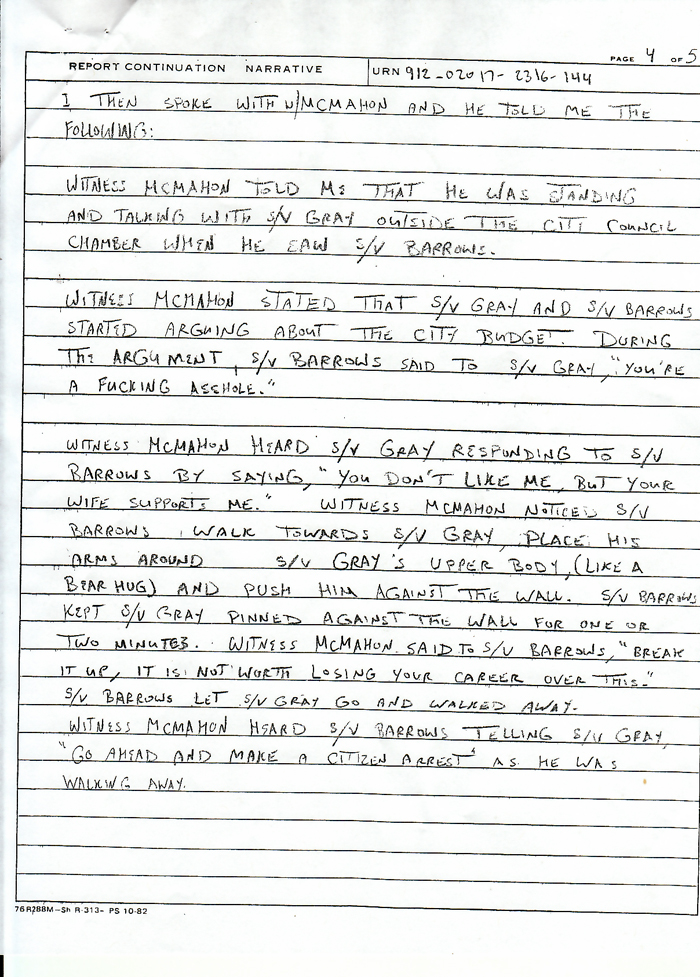 PAGE 4 OF 5
REPORT CONTINUATION NARRATIVE URN 912-02017-2316-144
I THEN SPOKE WITH W/MCMAHON AND HE TOLD ME THE
FOLLOWING:
WITNESS MCMAHON TOLD ME THAT HE WAS STANDING
AND TALKING WITH S/V GRAY OUTSIDE THE CITY COUNCIL
CHAMBER WHEN HE SAW S/V BARROWS.
WITNESS MCMAHON STATED THAT S/V GRAY AND S/V BARROWS
STARTED ARGUING ABOUT THE CITY BUDGET. DURING
THE ARGUMENT, S/V BARROWS SAID TO S/V GRAY, "YOU'RE
A FUCKING ASSHOLE."
WITNESS MCMAHON HEARD S/V GRAY RESPONDING TO S/V
BARROWS BY SAYING, "YOU DON'T LIKE ME, BUT YOUR
WIFE SUPPORTS ME." WITNESS MCMAHON NOTICED S/V
BARROWS WALK TOWARDS S/V GRAY, PLACE HIS
ARMS AROUND S/V GRAY'S UPPER BODY, (LIKE A
BEAR HUG) AND PUSH HIM AGAINST THE WALL. S/V BARROWS
KEPT S/V GRAY PINNED AGAINST THE WALL FOR ONE OR
TWO MINUTES. WITNESS MCMAHON SAID TO S/V BARROWS, "BREAK
IT UP, IT IS NOT WORTH LOSING YOUR CAREER OVER THIS."
S/V BARROWS LET S/V GRAY GO AND WALKED AWAY.
WITNESS MCMAHON HEARD S/V BARROWS TELLING S/V GRAY,
"GO AHEAD AND MAKE A CITIZEN ARREST" AS HE WAS
WALKING AWAY.
76R288M-Sh R-313- PS 10-82